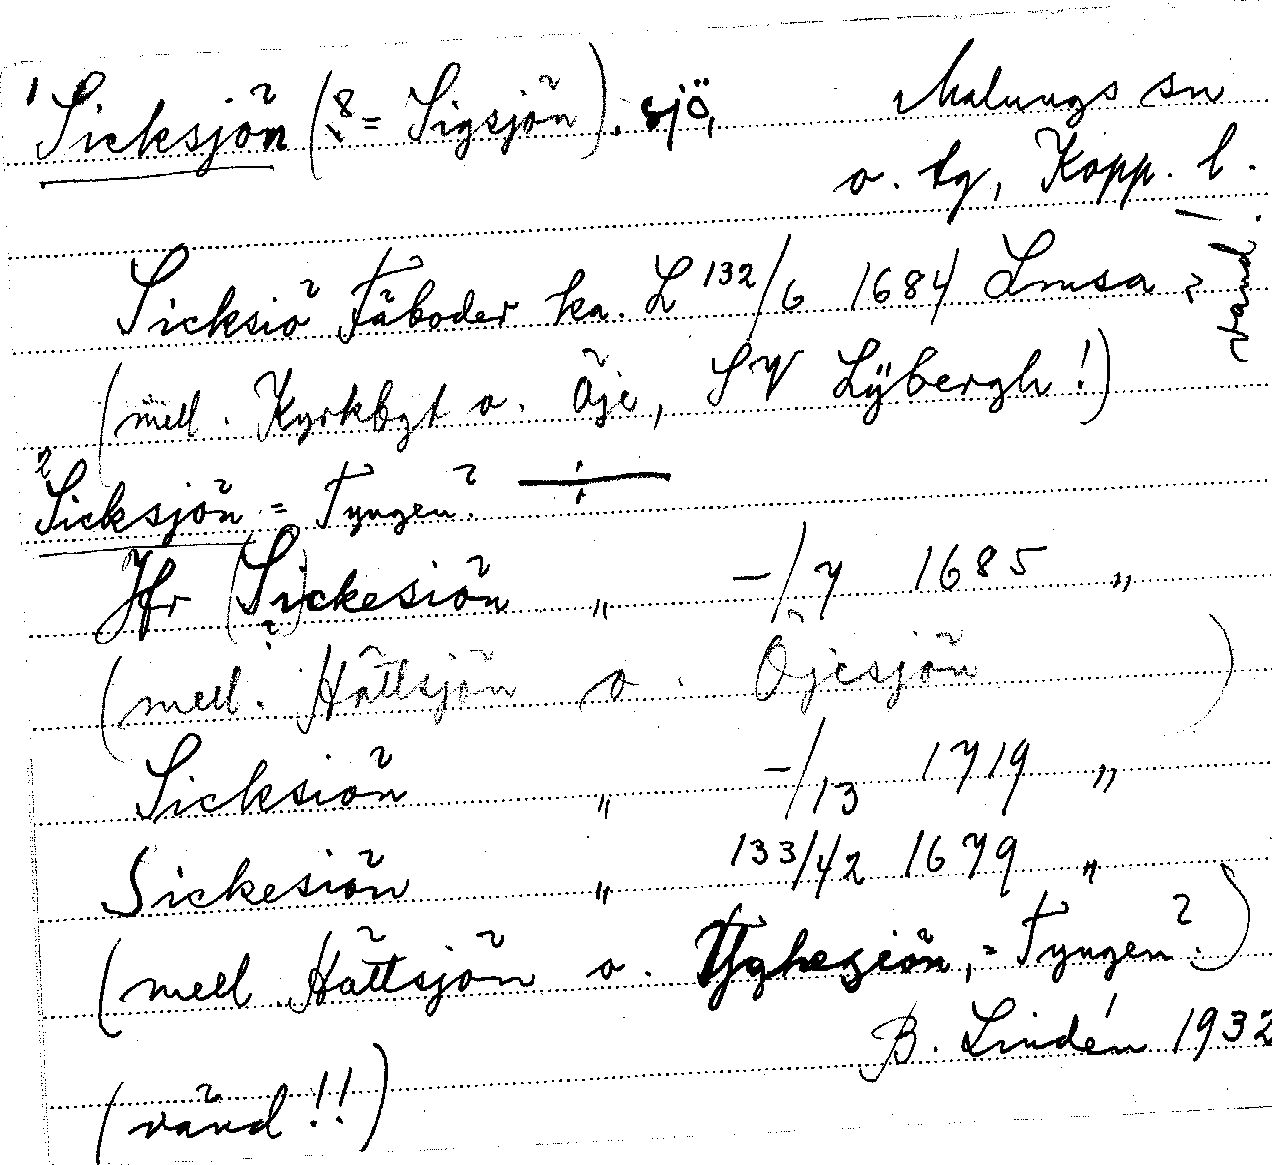 1 Sicksjön (? = Sigsjön). sjö, Malungs sn
o. tg, Kopp. l.
Sicksiö Fäboder ka. L 132/6 1684 Lmsa
vänd!
(mell. Kyrkbyt o. Öje, SV Lÿbergh!)
2 Sicksjön = Tyngen? ÷
Jfr (S)ickesiön " -/7 1685 "
(mell. Håttsjön o. Öjesjön )
Sicksiön " -/13 1719 "
Sickesiön " 133/42 1679 "
(mell Håttsjön o. Tyghesiön, = Tyngen?)
B. Lindén 1932
(vänd!!)